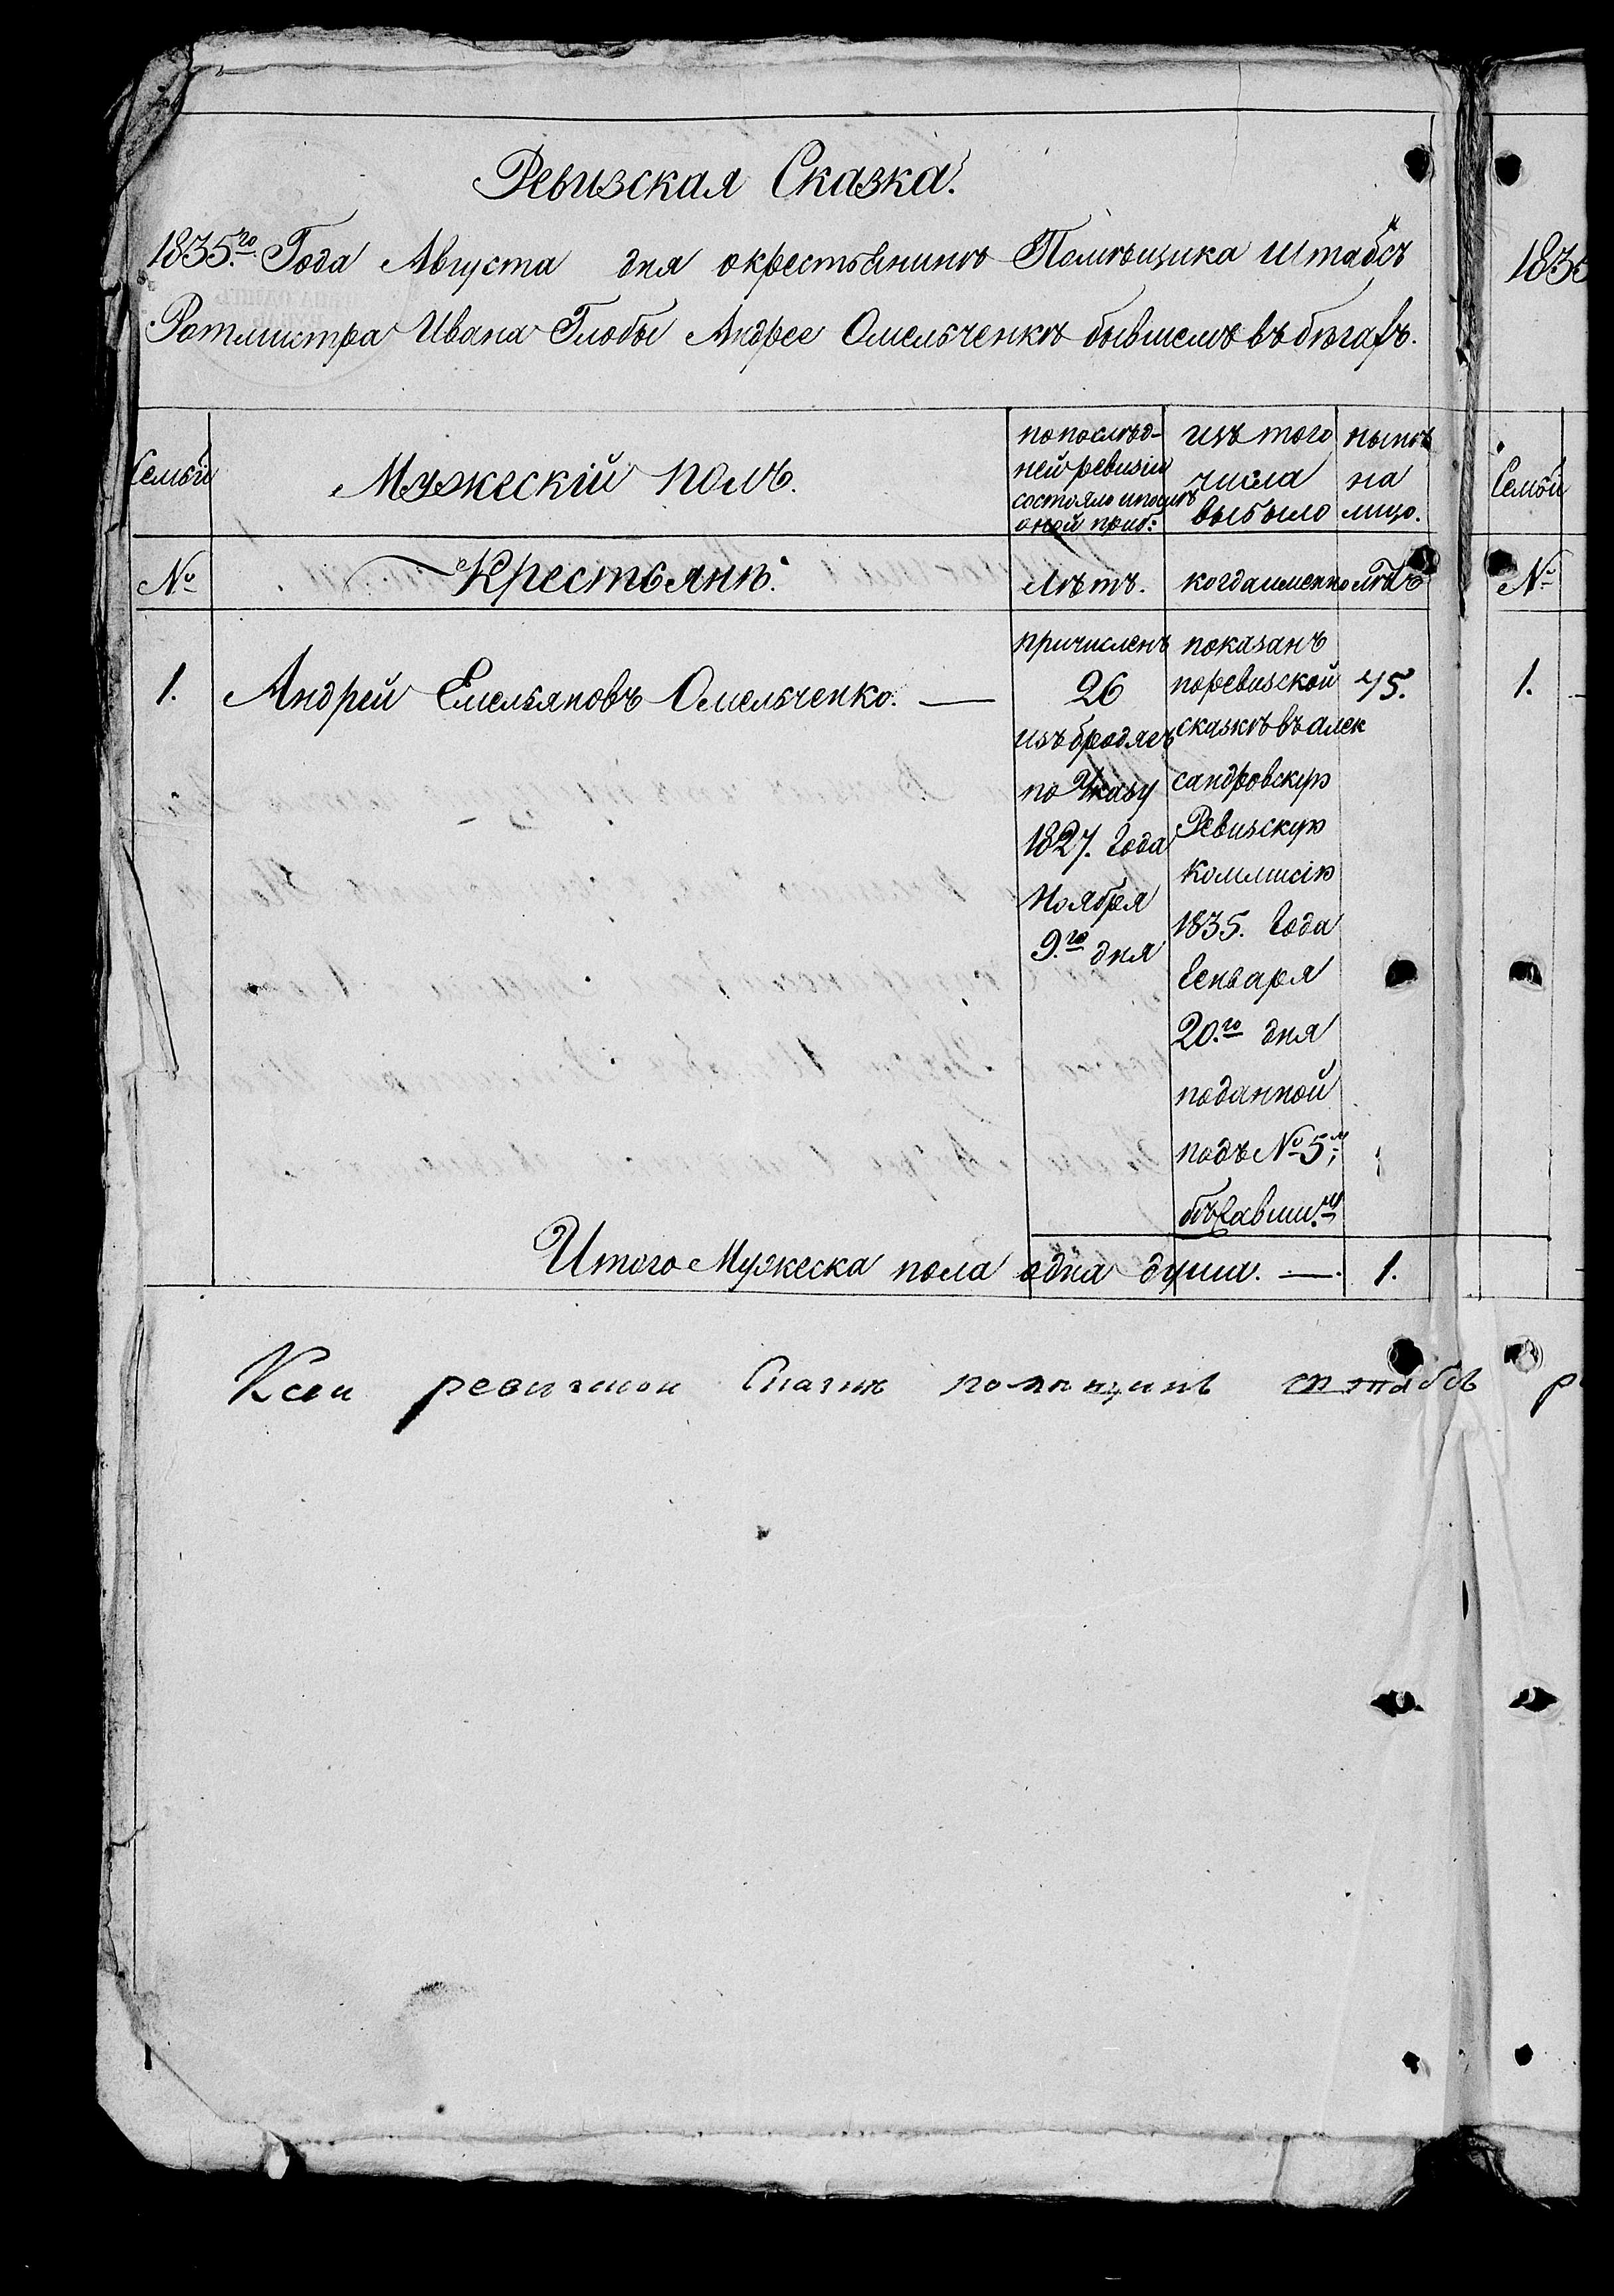 Ревизская Сказка.
1835.го Года Августа дня окрестьянинѣ Помѣщика Штабсъ
Ротмистра Ивана Глобы Андрее Омельченкѣ бывшемъ въ бѣгахъ.
Семьи
Мужескій полъ.
попослѣд-
ней ревизіи
состояло ипослѣ
оной приб:
изъ того
числа
выбыло
нынѣ
на
лицо.
№
Крестьянѣ.
Лѣтъ.
когда именно
лѣтъ
1.
Андрей Емельяновъ Омельченко. —
причисленъ
26
изъ бродягъ
по Указу
1827. года
Ноября
9.го дня
показанъ
поревизской
сказкѣ въ Алек
сандровскую
Ревизскую
Коммисію
1835. года
Генваря
20.го дня
поданной
подъ № 5.м
бѣжавши.м
45.
Итого Мужеска пола одна душа. —. 1.
Ксеи ревизскои Сказке помещикъ штабсъ
1835
Семьи
№
1.